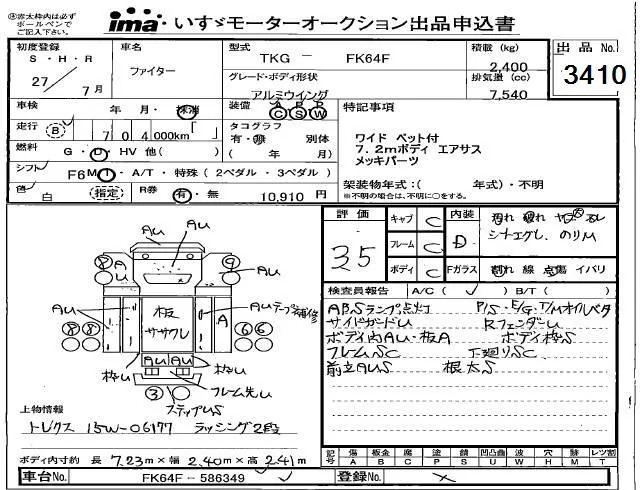 ㊟赤太枠内は必ず
ボールペンで
ご記入下さい。
ima いすゞモーターオークション出品申込書
初度登録
S・H・R
27/7月
車名
ファイター
型式
TKG － FK64F
グレード・ボディ形状
アルミウイング
積載 (kg)
2,400
排気量 (cc)
7,540
出品 No.
3410
車検 年 月・抹消
装備 A P P
C S W
走行 B 704,000km「 」
タコグラフ
有・無 別体
( 年 月)
燃料 G・D・HV 他( )
シフト F6 MT・A/T・特殊 (2ペダル・3ペダル)
色 白 (指定)
R券 有・無 10,910 円
特記事項
ワイド ベット付
7.2mボディ エアサス
メッキパーツ
架装物年式:( 年式)・不明
※不明の場合は、不明に○をする。
評価
35
キャブ C
フレーム C
ボディ C
内装 D
シートエグレ、のりU
Fガラス 割れ 線 点傷 イバリ
検査員報告 A/C( ✓ ) B/T( )
ABSランプ点灯 P/S・E/G・T/Mオイルベタ
サイドガードU RフェンダーU
ボディ内AU・板A ボディ枠S
フレームSC 下廻りSC
前立AUS 根太S
AU
AU
9
8
A
U
AU
AU
AU テープ補修
板
ササクレ
A
8 8
6 6
AU AU
枠U
枠U
フレーム先U
3
ステップUS
上物情報
トレクス 15W-06177 ラッシング2段
ボディ内寸約 長 7.23m×幅 2.40m×高 2.41m
記号 傷 板金 腐 塗 錆 凹凸曲 波 穴 錆 レツ割
A B C P S U W H Y T
車台No. FK64F－586349
登録No.